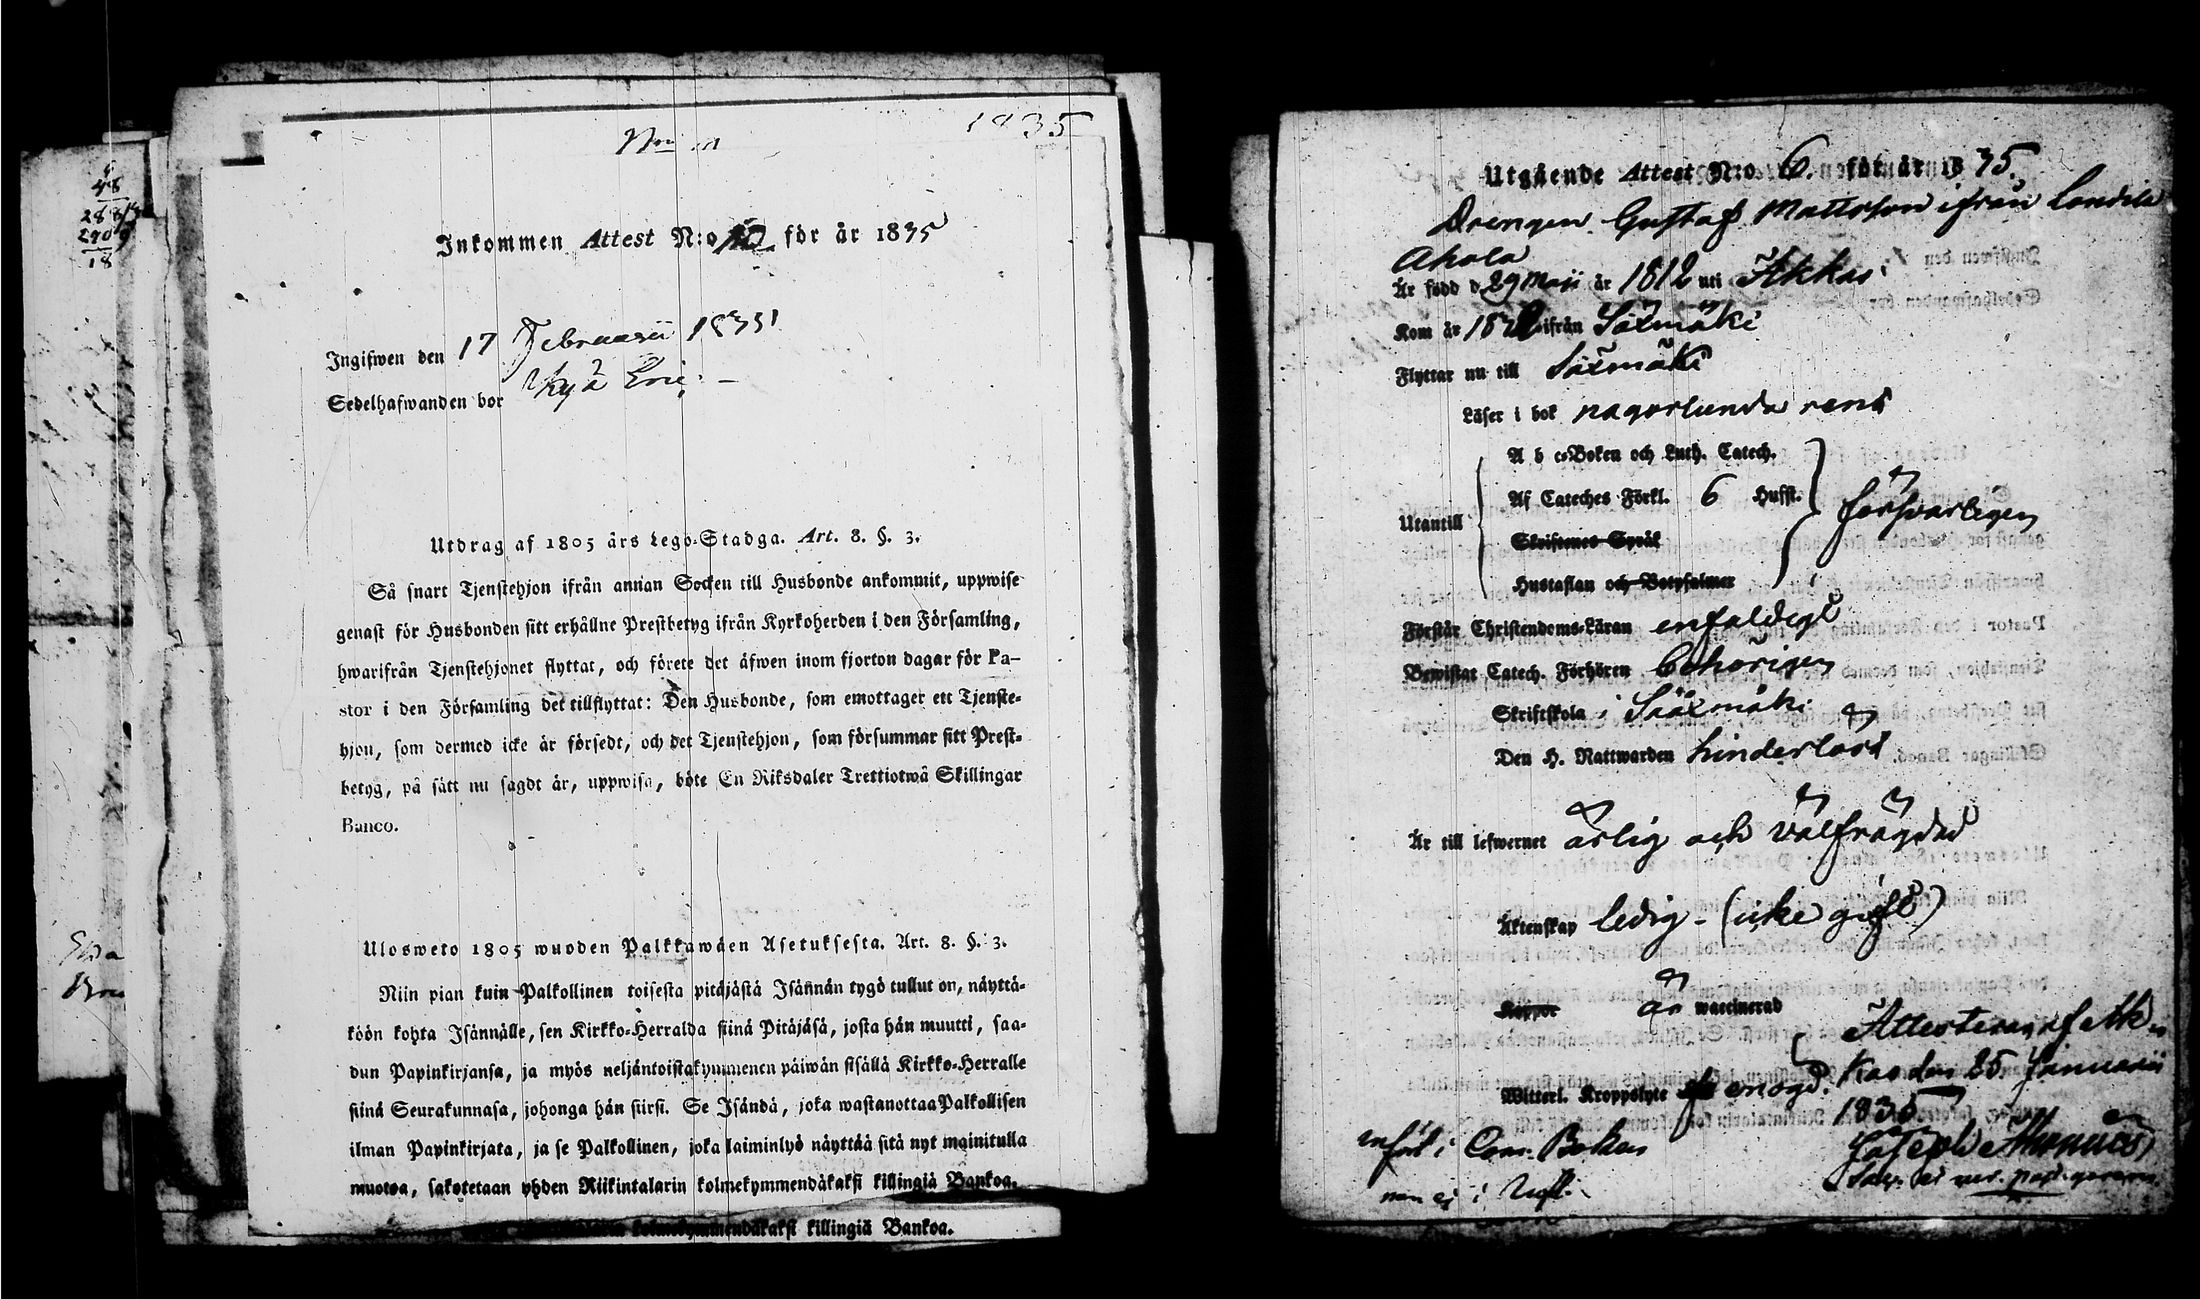 48
288
290 9
18
1835
Inkommen Attest N:o 10. för år 1835
Ingifwen den 17 Februarii 1835
Sedelhafwanden bor
Utdrag af 1805 års Lego-Stadga. Art. 8. §. 3.
Så snart Tjenstehjon ifrån annan Socken till Husbonde ankommit, uppwise
genast för Husbonden sitt erhållne Prestbetyg ifrån Kyrkoherden i den Församling,
hwarifrån Tjenstehjonet flyttat, och förete det äfwen inom fjorton dagar för Pa-
stor i den Församling det tillflyttat: Den Husbonde, som emottager ett Tjenste-
hjon, som dermed icke är försedt, och det Tjenstehjon, som försummar sitt Prest-
betyg, på sätt nu sagdt är, uppwisa, böte En Riksdaler Trettiotwå Skillingar
Banco.
Ulosweto 1805 wuoden Palkkawäen Asetuksesta. Art. 8. §. 3.
Niin pian kuin Palkollinen toisesta pitäjästä Isännän tygö tullut on, näyttä-
köön kohta Isännälle, sen Kirkko-Herralda siinä Pitäjäsä, josta hän muutti, saa-
dun Papinkirjansa, ja myös neljäntoistakymmenen päiwän sisällä Kirkko-Herralle
siinä Seurakunnasa, johonga hän siirsi. Se Isändä, joka wastanottaa Palkollisen
ilman Papinkirjata, ja se Palkollinen, joka laiminlyö näyttää sitä nyt mainitulla
muotoa, sakotetaan yhden Riikintalarin kolmekymmendäkaksi killingiä Bankoa.
kolmekymmendäkaksi killingiä Bankoa.
Utgående Attest N:o 6. för år 1835.
Drengen Gustaf Mattsson ifrån
Ahola
Är född d. 29 Maji år 1812 uti Akkas
Kom år ifrån Säxmäki
Flyttar nu till Säxmäki
Läser i bok någorlunda rent
A b c-Boken och Luth. Catech.
Af Cateches Förkl. 6 Hufst.
Utantill
försvarligen
Skriftenes Språk
Hustaflan och Botpsalmer
Förstår Christendoms-Läran enfaldigt
Bewistat Catech. Förhören behörigen
Skriftskola i Sääxmäki
Den H. Nattwarden hinderlöst
Är till lefwernet ärlig och välfrägdad
Äktenskap ledig - (icke gift)
Koppor är waccinerad
Witterl. Kroppslyte
Attesteras af Ak-
kas den 25. Januarii
1835
införd i Com. Boken
men ej i
Joseph